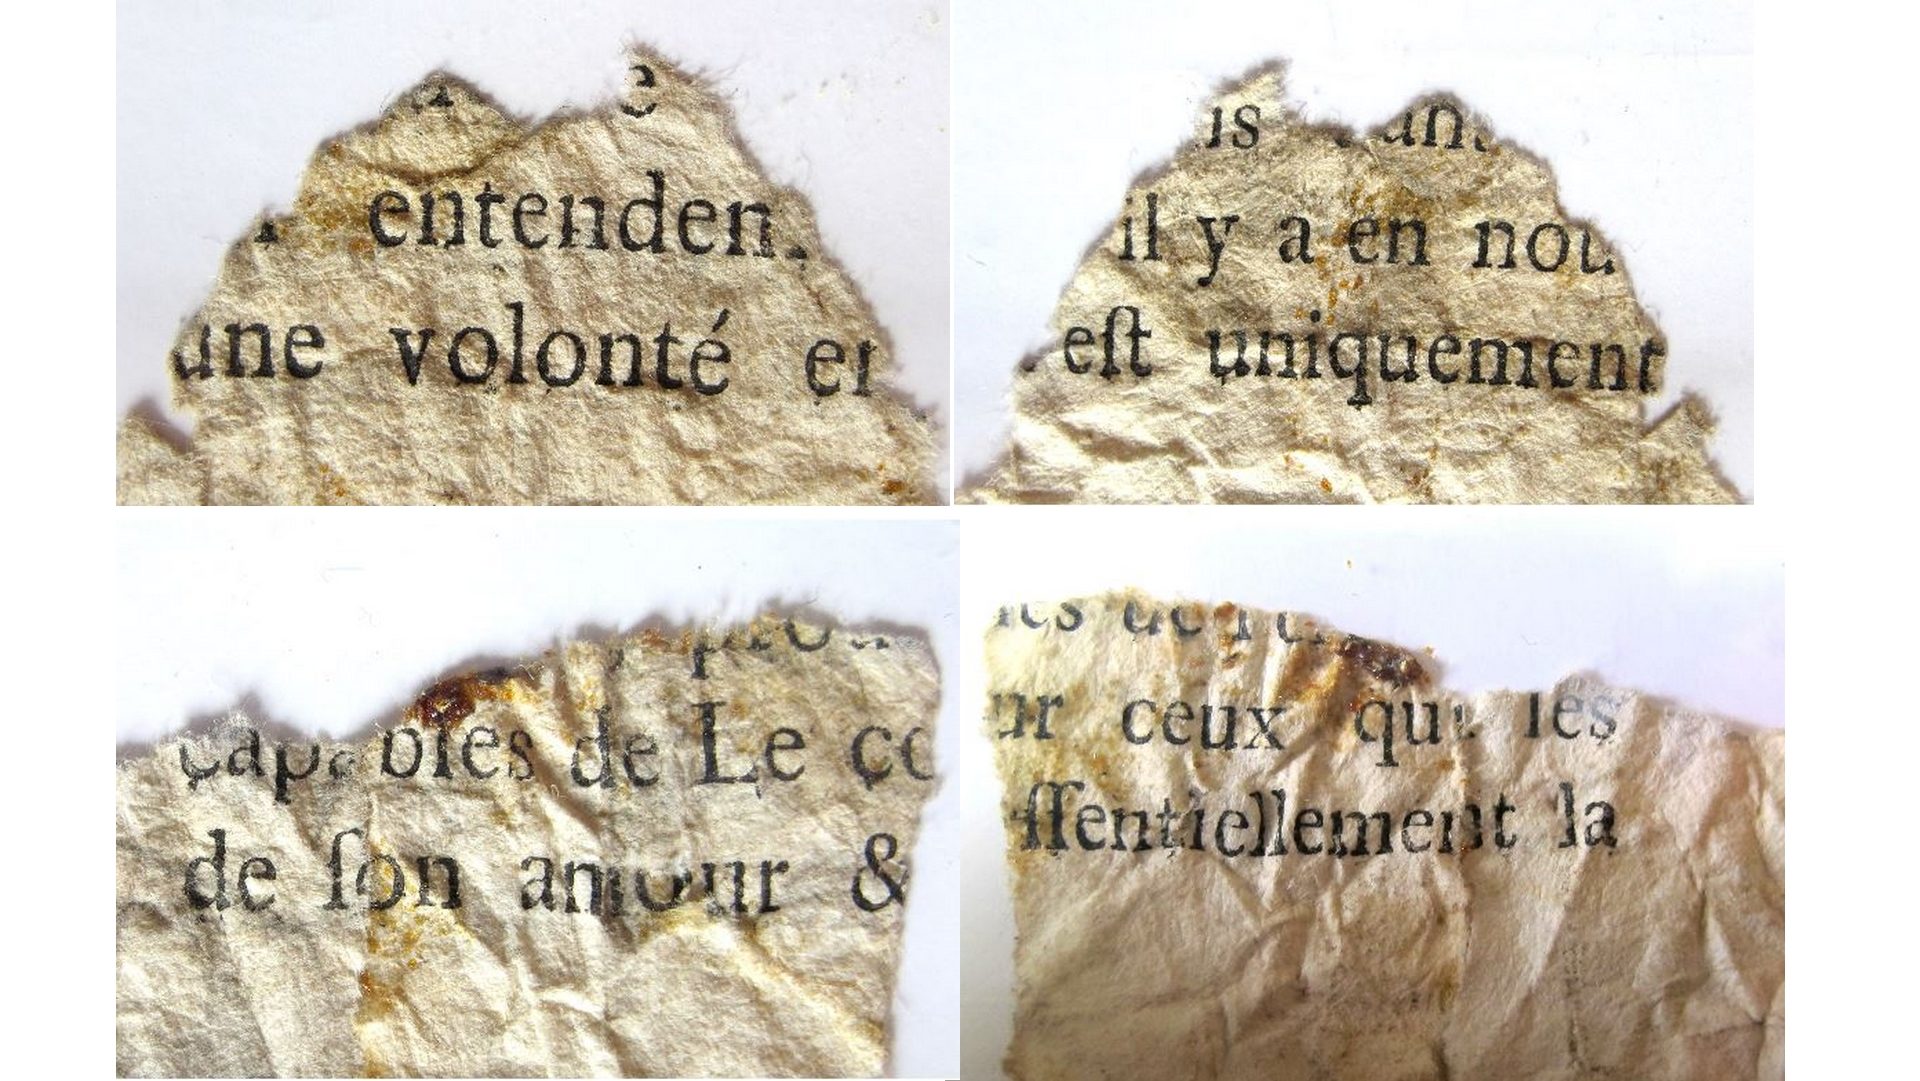 entenden
une volonté
il y a en nou
eſt uniquement
capables de Le co
de ſon amour &
ur ceux qui les
ſſentiellement la